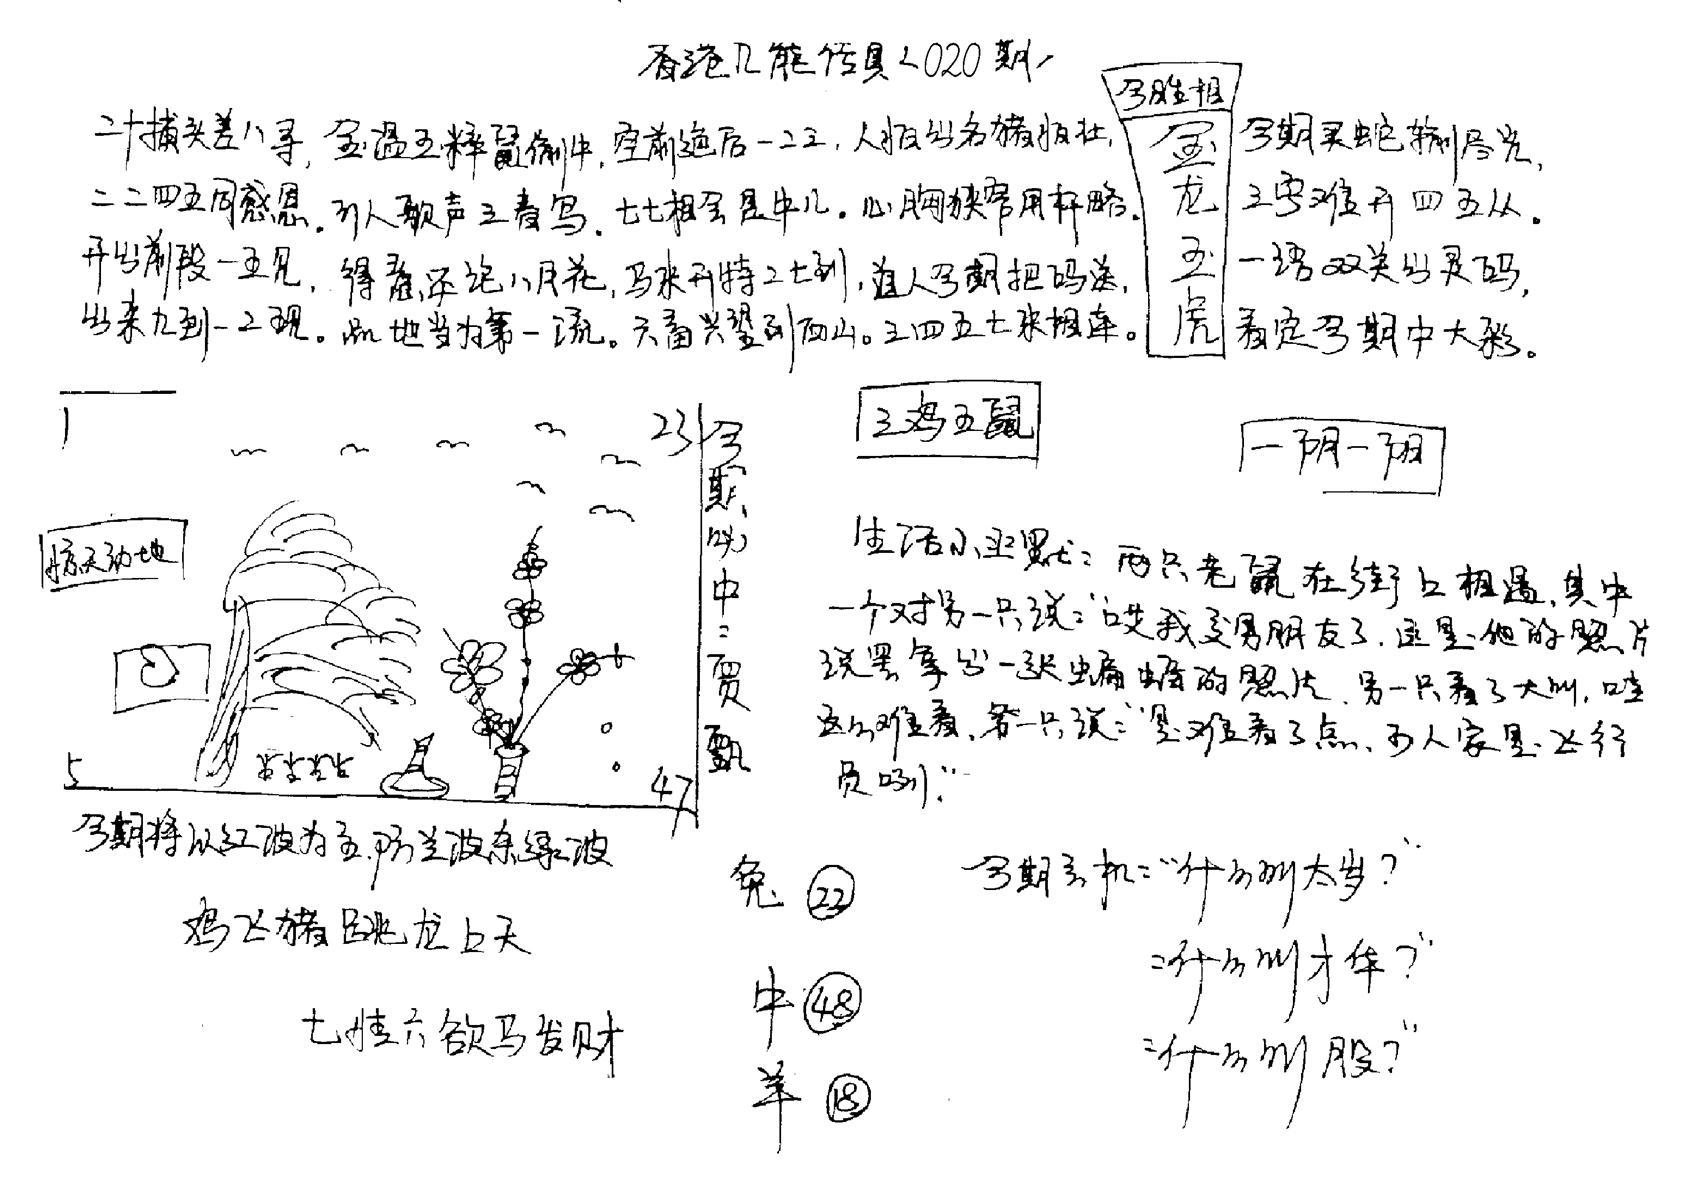 香港几能传真〈020期
今胜相
金龙玉虎
二十摘头差八寻,
空前绝后一二三,
今期买蛇输尽光,
二二四五同感恩。引人歌声三春鸟。七七相会是牛儿。心胸狭窄用杆略。
三字难开四五从。
开出前段一五见,
马来开特二七到,道人今期把码送,
一语双关出灵码,
出来九到一2现。品地当为第一流。六畜兴望到西山。三四五七来相连。
看定今期中大彩。
1
23
三鸡五鼠
一阴一阳
惊天动地
5
47
今期必中:贾甄
生活小幽默:两只老鼠在街上相遇,其中
一个对另一只说:“哎我交男朋友了.这是他的照片
说罢拿出一张蝙蝠的照片.另一只看了大叫,哇
这么难看,第一只说:“是难看了点,可人家是飞行
员咧!”
今期将以红波为主,防兰波杀绿波
鸡飞猪跳龙上天
七情六欲马发财
兔 22
中 48
羊 18
今期玄机:“什么叫太岁?”
:什么叫才华?”
:什么叫股?”